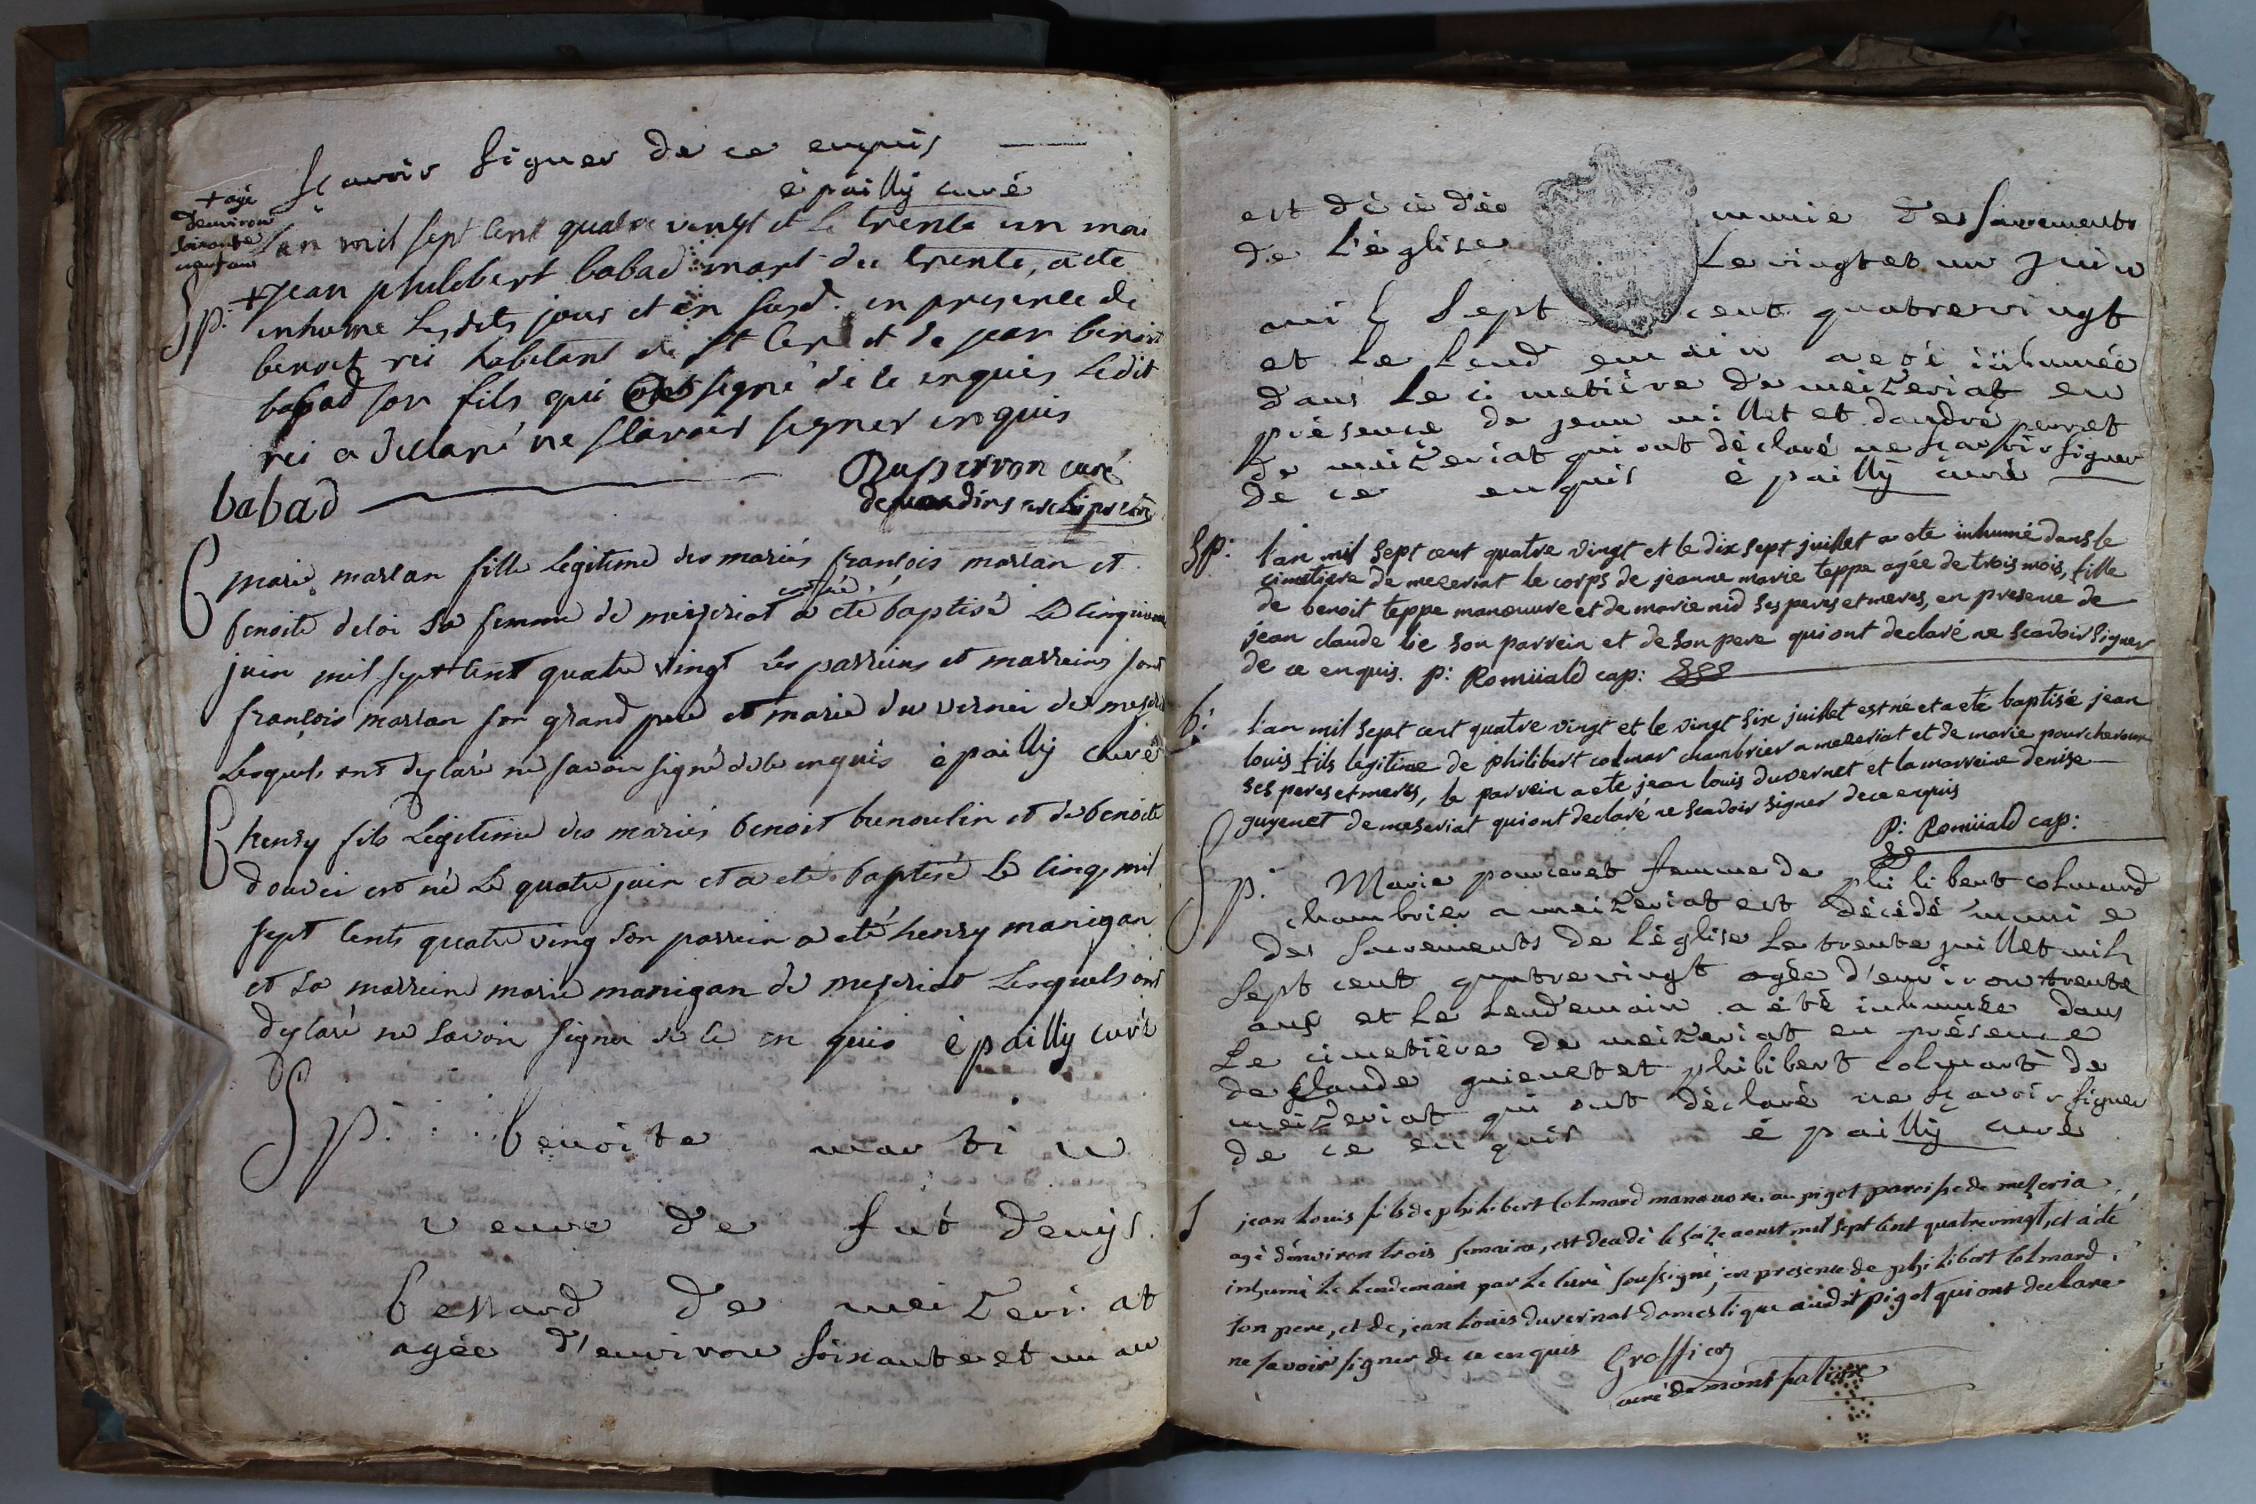 sçavoir signer de ce enquis
épaillÿ curé
+ agé
denviron
soixante
neuf ans
Lan mil sept cent quatre vingt et le trente un mai
Sp: + Jean philibert babad mort du trente, a ete
inhume lesdits jour et an susd. en presence de
benoit rei habitant de st Cir et de jean benoit
babad son fils qui ont signé de ce enquis ledit
rei a declaré ne scavoir signer enquis
babad
Duperron curé
de vandins archipretre
B marie marlan fille legitime des mariés françois marlan et
est né
benoite deloi sa femme de meizeriat a eté baptisé Le cinquieme
juin mil sept cent quatre vingt les parreins et marreins sont
françois marlan son grand pere et marie du vernei de mezeriat
Lesquels ont déclaré ne savoir signé de ce enquis épaillÿ curé
B henry fils Légitime des mariés benoit brenoulin et de benoite
douvei est né Le quatre juin et a eté baptisé Le cinq, mil
sept cents quatre ving son parrein a eté henry manigan
et sa marreine marie manigan de mezeriat Lesquels ont
déclaré ne savoir signer de ce en quis épaillÿ curé
Sp: benoite martin
veuve de fut denÿs
bessard de meizeriat
agée d'environ soixante et un an
est décédée munie des sacrements
de l'église Le vingt et un Juin
mil sept cent quatrevingt
et le lendemain a eté inhumée
dans le cimetière de meizeriat en
présence de jean millet et dandré perret
de meizeriat qui ont déclaré ne sçavoir signer
de ce enquis épaillÿ curé
Sp: l'an mil sept cent quatre vingt et le dix sept juillet a ete inhumé dans le
cimetiere de mezeriat le corps de jeanne marie teppe agée de trois mois, fille
de benoit teppe manœuvre et de marie nid ses peres et meres, en presence de
jean claude lie son parrein et de son pere qui ont declaré ne scavoir signer
de ce enquis. p: Romüald cap:
b: l'an mil sept cent quatre vingt et le vingt six juillet est né et a eté baptisé jean
louis fils legitime de philibert colmar chambrier a mezeriat et de marie pourcheroux
ses peres et meres, le parrein a ete jean louis duvernet et la marreine denise
guyenet de meseriat qui ont declaré ne scavoir signer de ce enquis
p: Romüald cap:
Sp: Marie pourceret femme de philibert colmard
chambrier a meizeriat est décédé munie
des sacrements de l'église Le trente juillet mil
sept cent quatrevingt agée d'environ trente
ans et le lendemain a été inhumée dans
Le cimetière de meizeriat en présence
de claude guienet et philibert colmart de
meizeriat qui ont déclaré ne sçavoir signer
de ce enquis épaillÿ curé
S jean Louis fils de philibert colmard manouvre au pigot paroisse de mezeria
agé d'environ trois semaine, est decedé le saize aoust mil sept cent quatrevingt, et a eté
inhumé le lendemain par le curé soussigné; en presence de philibert colmard
son pere, et de jean Louis duvernat domestique audit pigot qui ont declare
ne savoir signer de ce enquis Groffier
curé de montfalcon